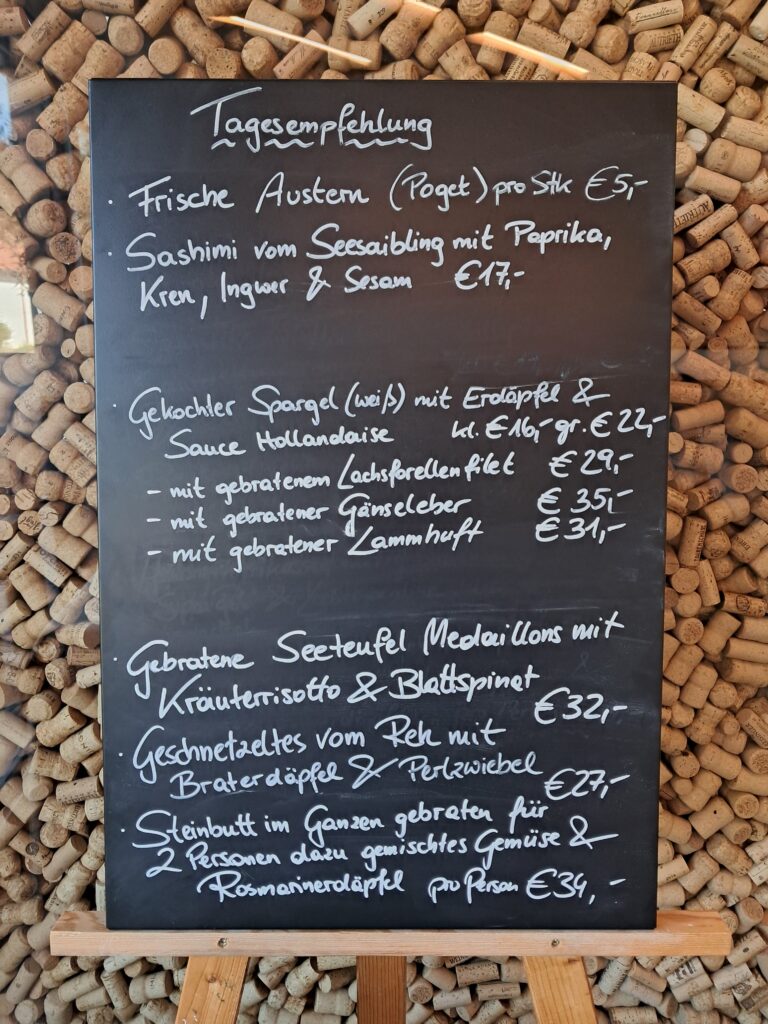 Tagesempfehlung
· Frische Austern (Poget) pro Stk €5,-
· Sashimi vom Seesaibling mit Paprika,
Kren, Ingwer & Sesam €17,-
· Gekochter Spargel (weiß) mit Erdäpfel &
Sauce Hollandaise kl. €16,- gr. €22,-
- mit gebratenem Lachsforellenfilet €29,-
- mit gebratener Gänseleber €35,-
- mit gebratener Lammhuft €31,-
· Gebratene Seeteufel Medaillons mit
Kräuterrisotto & Blattspinat
€32,-
· Geschnetzeltes vom Reh mit
Braterdäpfel & Perlzwiebel
€27,-
· Steinbutt im Ganzen gebraten für
2 Personen dazu gemischtes Gemüse &
Rosmarinerdäpfel pro Person €34,-